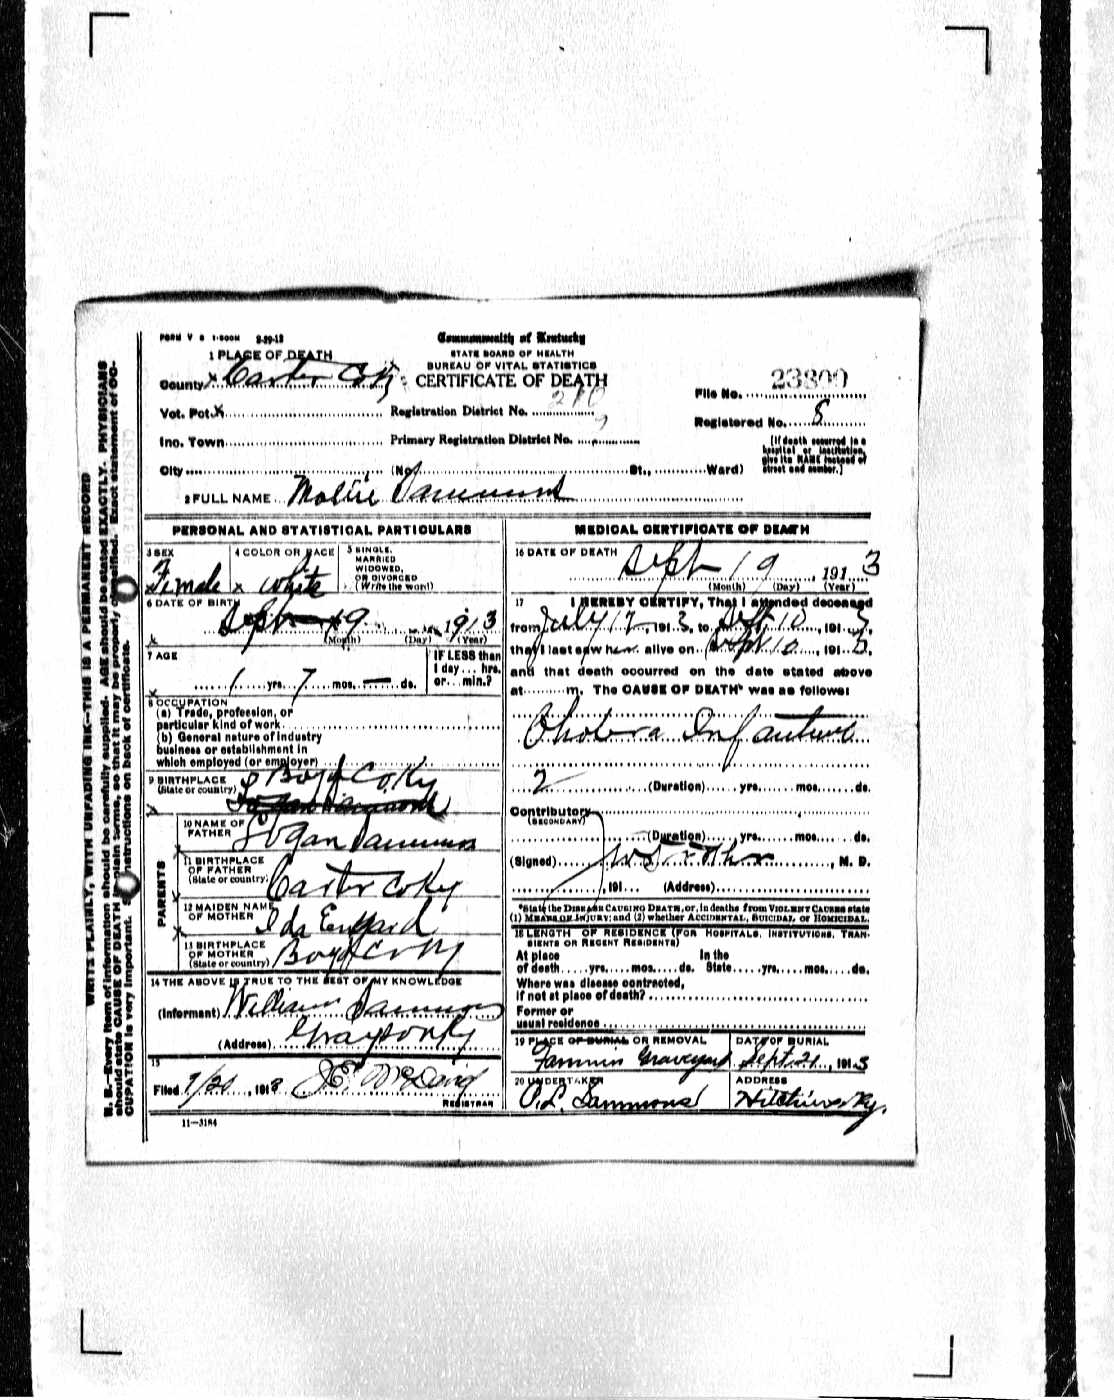 FORM V S 1-500M 2-29-12
Commonwealth of Kentucky
STATE BOARD OF HEALTH
BUREAU OF VITAL STATISTICS
CERTIFICATE OF DEATH
1 PLACE OF DEATH
County Carter Co Ky
Vot. Pct.
Registration District No.
Inc. Town
Primary Registration District No.
City (No. St., Ward)
File No. 23800
Registered No. 8
[If death occurred in a
hospital or institution,
give its NAME instead of
street and number.]
2 FULL NAME Mollie Sammons
PERSONAL AND STATISTICAL PARTICULARS
3 SEX
Female
4 COLOR OR RACE
White
5 SINGLE,
MARRIED
WIDOWED,
OR DIVORCED
(Write the word)
6 DATE OF BIRTH
Sept 19 1913
(Month) (Day) (Year)
7 AGE
1 yrs. 7 mos. — ds.
IF LESS than
1 day ... hrs.
or ... min.?
8 OCCUPATION
(a) Trade, profession, or
particular kind of work
(b) General nature of industry
business or establishment in
which employed (or employer)
9 BIRTHPLACE
(State or country)
Boyd Co Ky
PARENTS
10 NAME OF
FATHER
Logan Sammons
11 BIRTHPLACE
OF FATHER
(State or country)
Carter Co Ky
12 MAIDEN NAME
OF MOTHER
Ida
13 BIRTHPLACE
OF MOTHER
(State or country)
Boyd Co Ky
14 THE ABOVE IS TRUE TO THE BEST OF MY KNOWLEDGE
(Informant) William Sammons
(Address) Grayson Ky
15
Filed 9/20, 1913 J.E. McDavid
REGISTRAR
11—3184
MEDICAL CERTIFICATE OF DEATH
16 DATE OF DEATH
Sept 19, 1913
(Month) (Day) (Year)
17 I HEREBY CERTIFY, That I attended deceased
from July 17, 1913, to Sept 10, 1913,
that I last saw her alive on Sept 10, 1913,
and that death occurred on the date stated above
at m. The CAUSE OF DEATH* was as follows:
Cholera Infantum
2 (Duration) yrs. mos. ds.
Contributory
(SECONDARY)
(Duration) yrs. mos. ds.
(Signed) , M. D.
, 191 (Address)
*State the DISEASE CAUSING DEATH, or, in deaths from VIOLENT CAUSES state
(1) MEANS OF INJURY; and (2) whether ACCIDENTAL, SUICIDAL or HOMICIDAL.
18 LENGTH OF RESIDENCE (FOR HOSPITALS, INSTITUTIONS, TRAN-
SIENTS OR RECENT RESIDENTS)
At place In the
of death yrs. mos. ds. State yrs. mos. ds.
Where was disease contracted,
if not at place of death?
Former or
usual residence
19 PLACE OF BURIAL OR REMOVAL
Graveyard
DATE OF BURIAL
Sept. 21, 1913
20 UNDERTAKER
P.L. Sammons
ADDRESS
Hitchins Ky.
WRITE PLAINLY, WITH UNFADING INK—THIS IS A PERMANENT RECORD
N. B.—Every item of information should be carefully supplied. AGE should be stated EXACTLY. PHYSICIANS
should state CAUSE OF DEATH in plain terms, so that it may be properly classified. Exact statement of OC-
CUPATION is very important. See instructions on back of certificate.